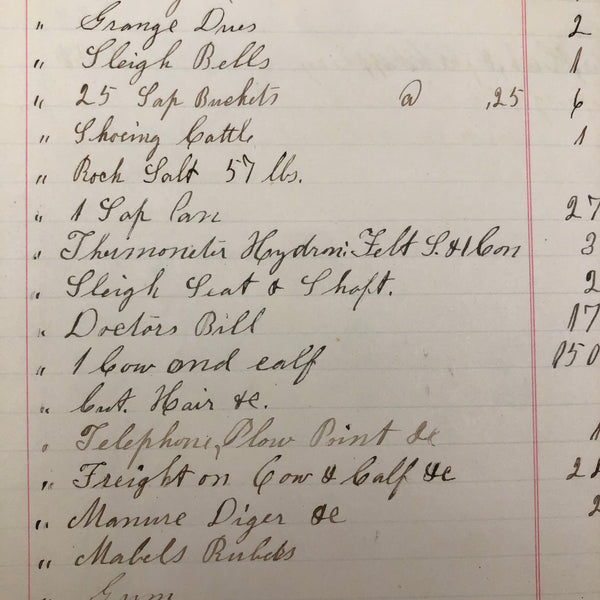 " Grange Dues 2
" Sleigh Bells 1
" 25 Sap Buckets @ ,25 6
" Shoeing Cattle 1
" Rock Salt 57 lbs.
" 1 Sap Can 27
" Thermometer Hydrom. Felt S. & 1 Con 3
" Sleigh Seat & Shaft. 2
" Doctors Bill 17
" 1 Cow and calf 150
" Cut. Hair &c.
" Telephone, Plow Point &c 1
" Freight on Cow & Calf &c 2
" Manure Diger &c 2
" Mabels Rubels
" Gum